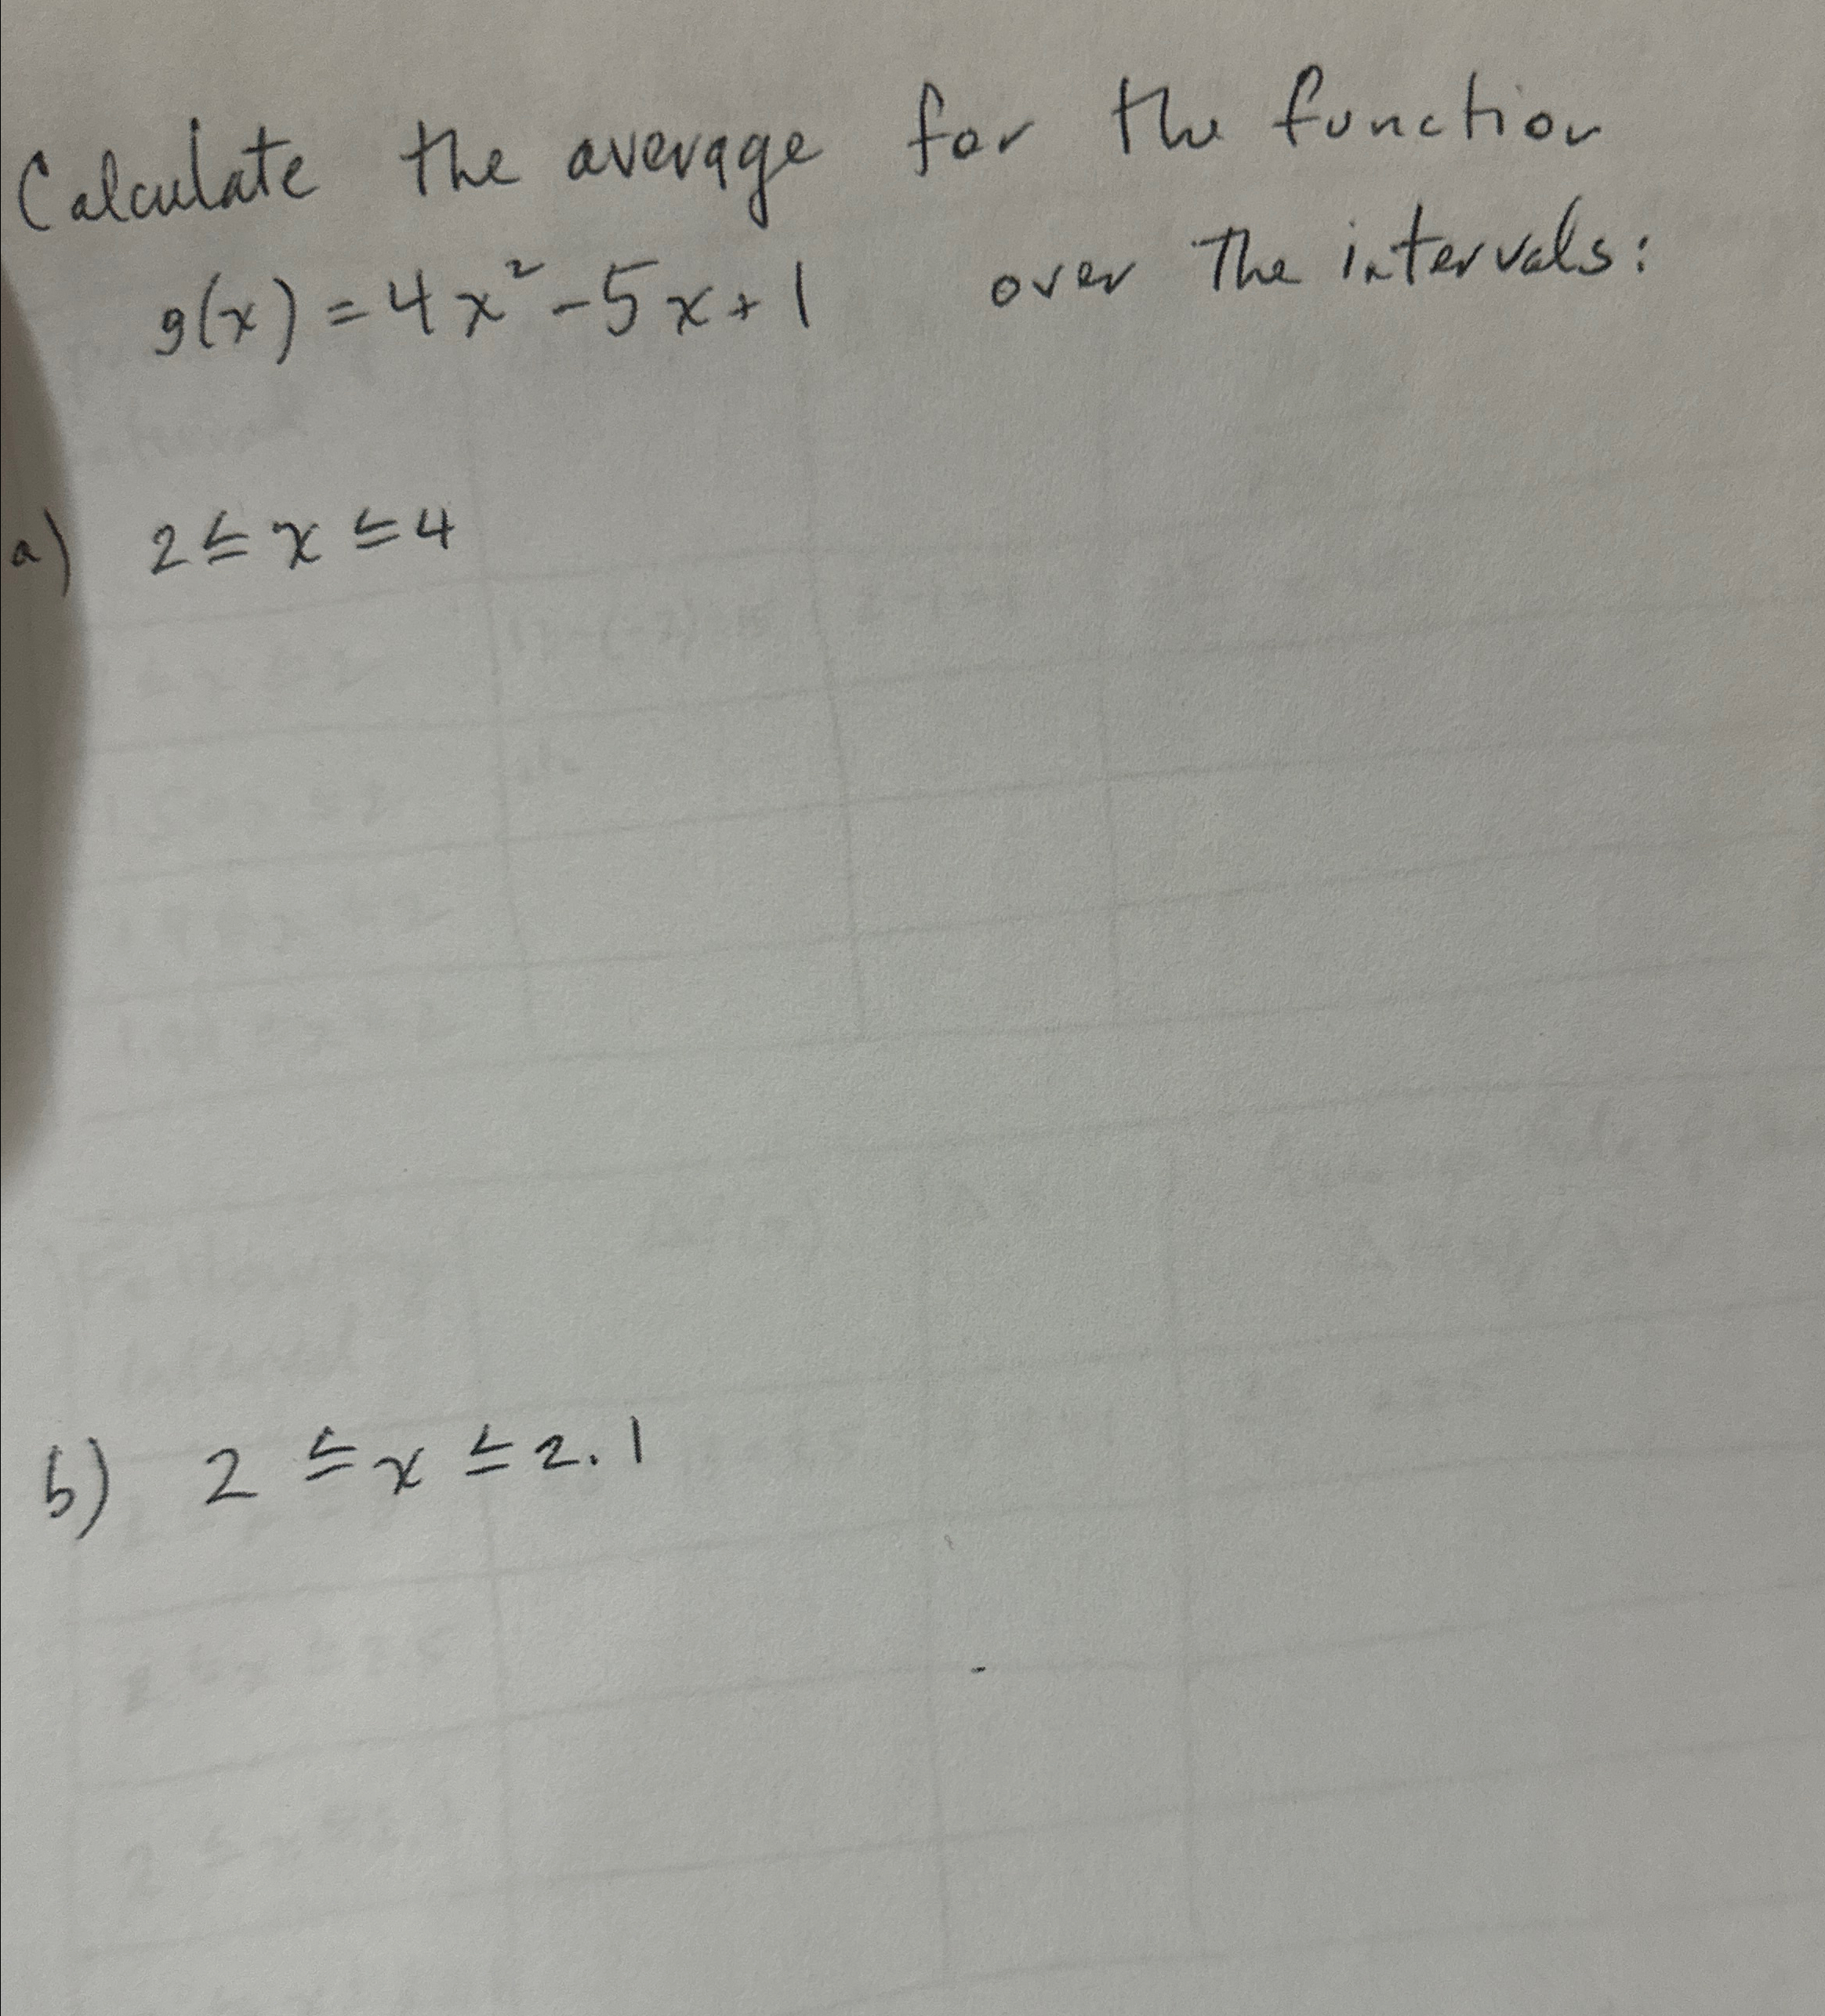 Calculate the average for the function
g(x) = 4x² - 5x + 1 over the intervals:
a) 2 ≤ x ≤ 4
b) 2 ≤ x ≤ 2.1